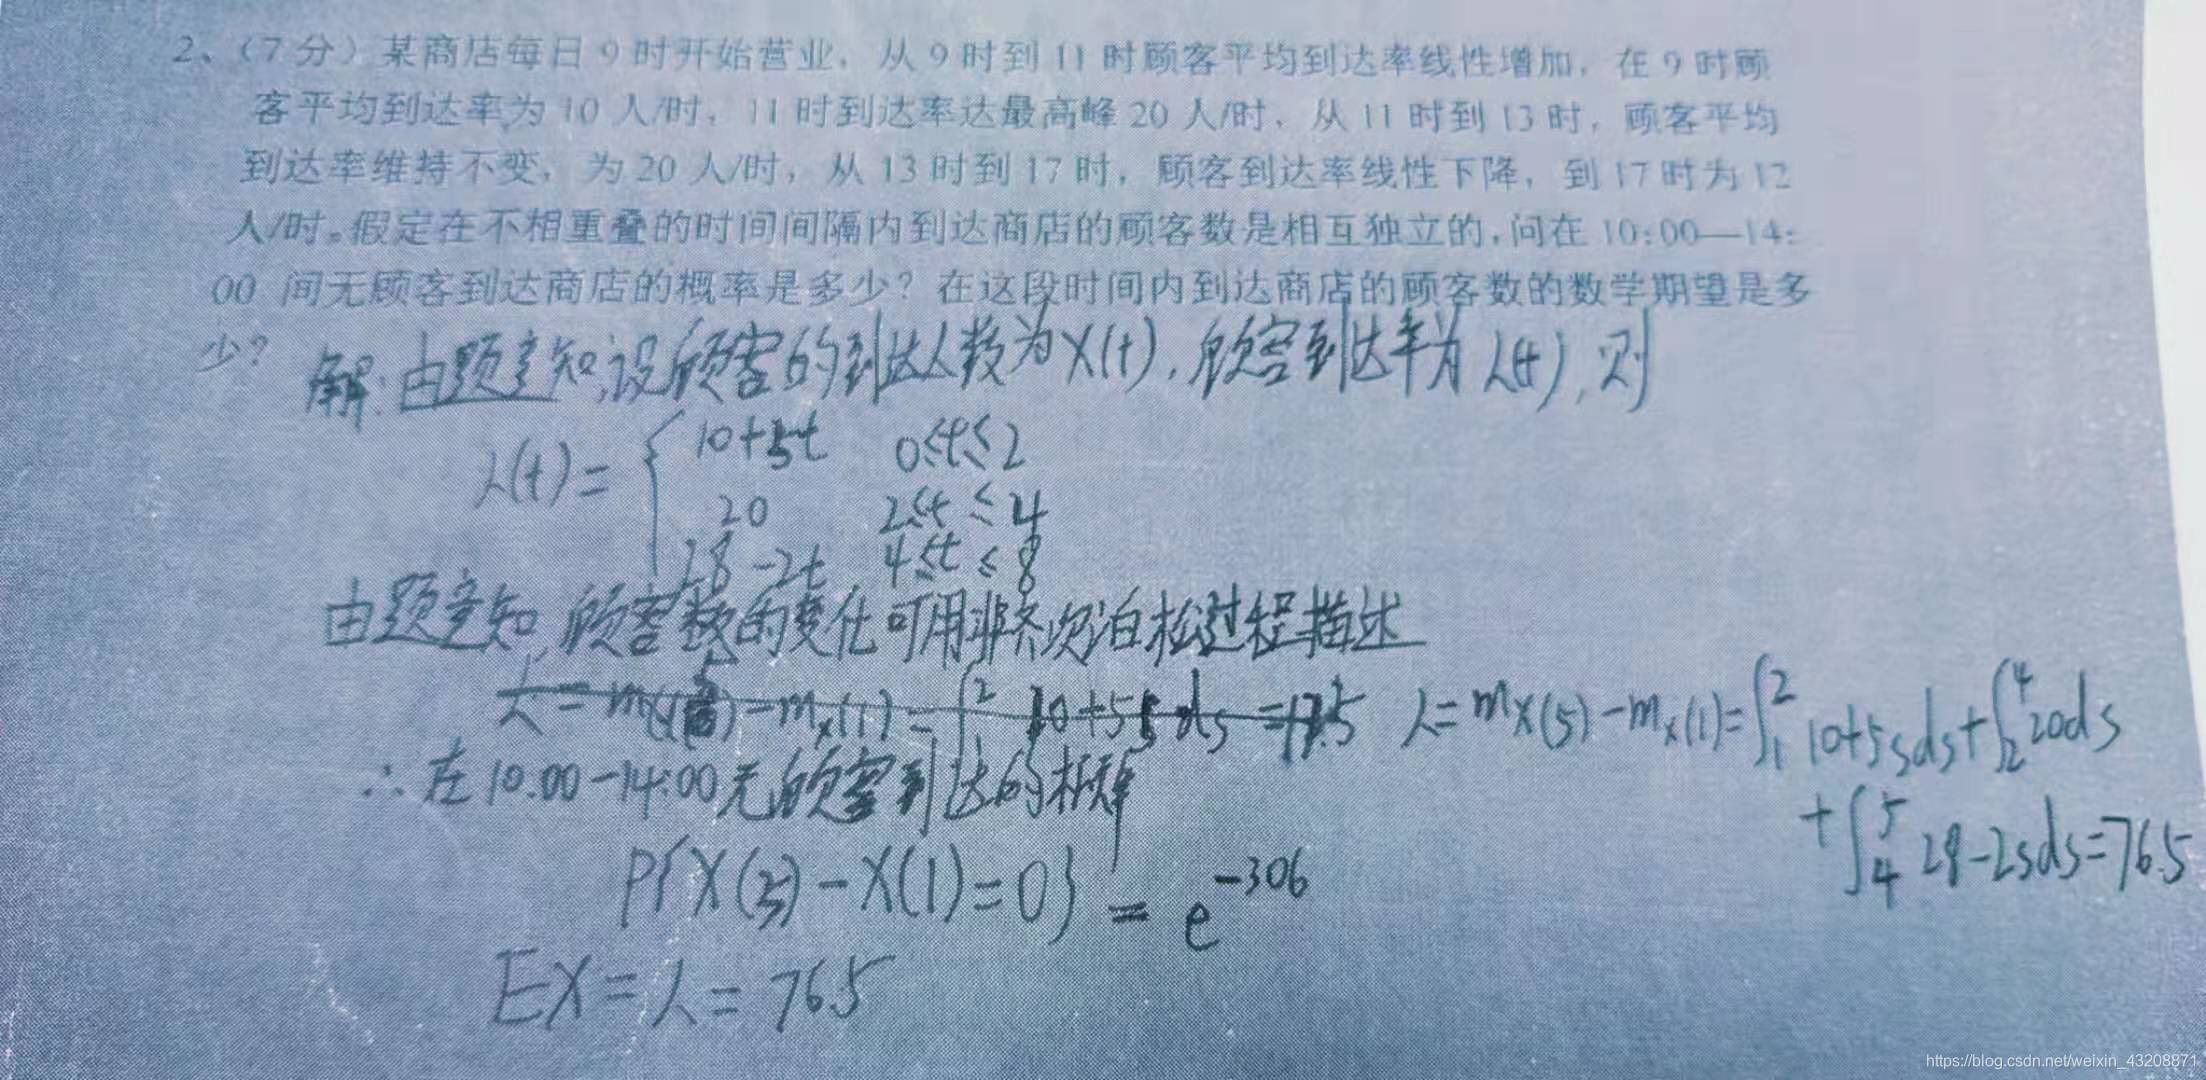 2、(7 分) 某商店每日 9 时开始营业，从 9 时到 11 时顾客平均到达率线性增加，在 9 时顾
客平均到达率为 10 人/时，11 时到达率达最高峰 20 人/时，从 11 时到 13 时，顾客平均
到达率维持不变，为 20 人/时，从 13 时到 17 时，顾客到达率线性下降，到 17 时为 12
人/时。假定在不相重叠的时间间隔内到达商店的顾客数是相互独立的,问在 10:00—14:
00 间无顾客到达商店的概率是多少？在这段时间内到达商店的顾客数的数学期望是多
少？
解:由题意知,设顾客的到达人数为X(t),顾客到达率为λ(t),则
λ(t)= { 10+5t 0≤t≤2
20 2≤t≤4
28-2t 4≤t≤8
由题意知,顾客数的变化可用非齐次泊松过程描述
λ=mX(5)-mX(1)=∫₁² 10+5sds+∫₂⁴ 20ds
+∫₄⁵ 28-2sds=76.5
∴在10:00-14:00无顾客到达的概率
P{X(5)-X(1)=0} = e^-306
EX=λ=76.5
https://blog.csdn.net/weixin_43208871